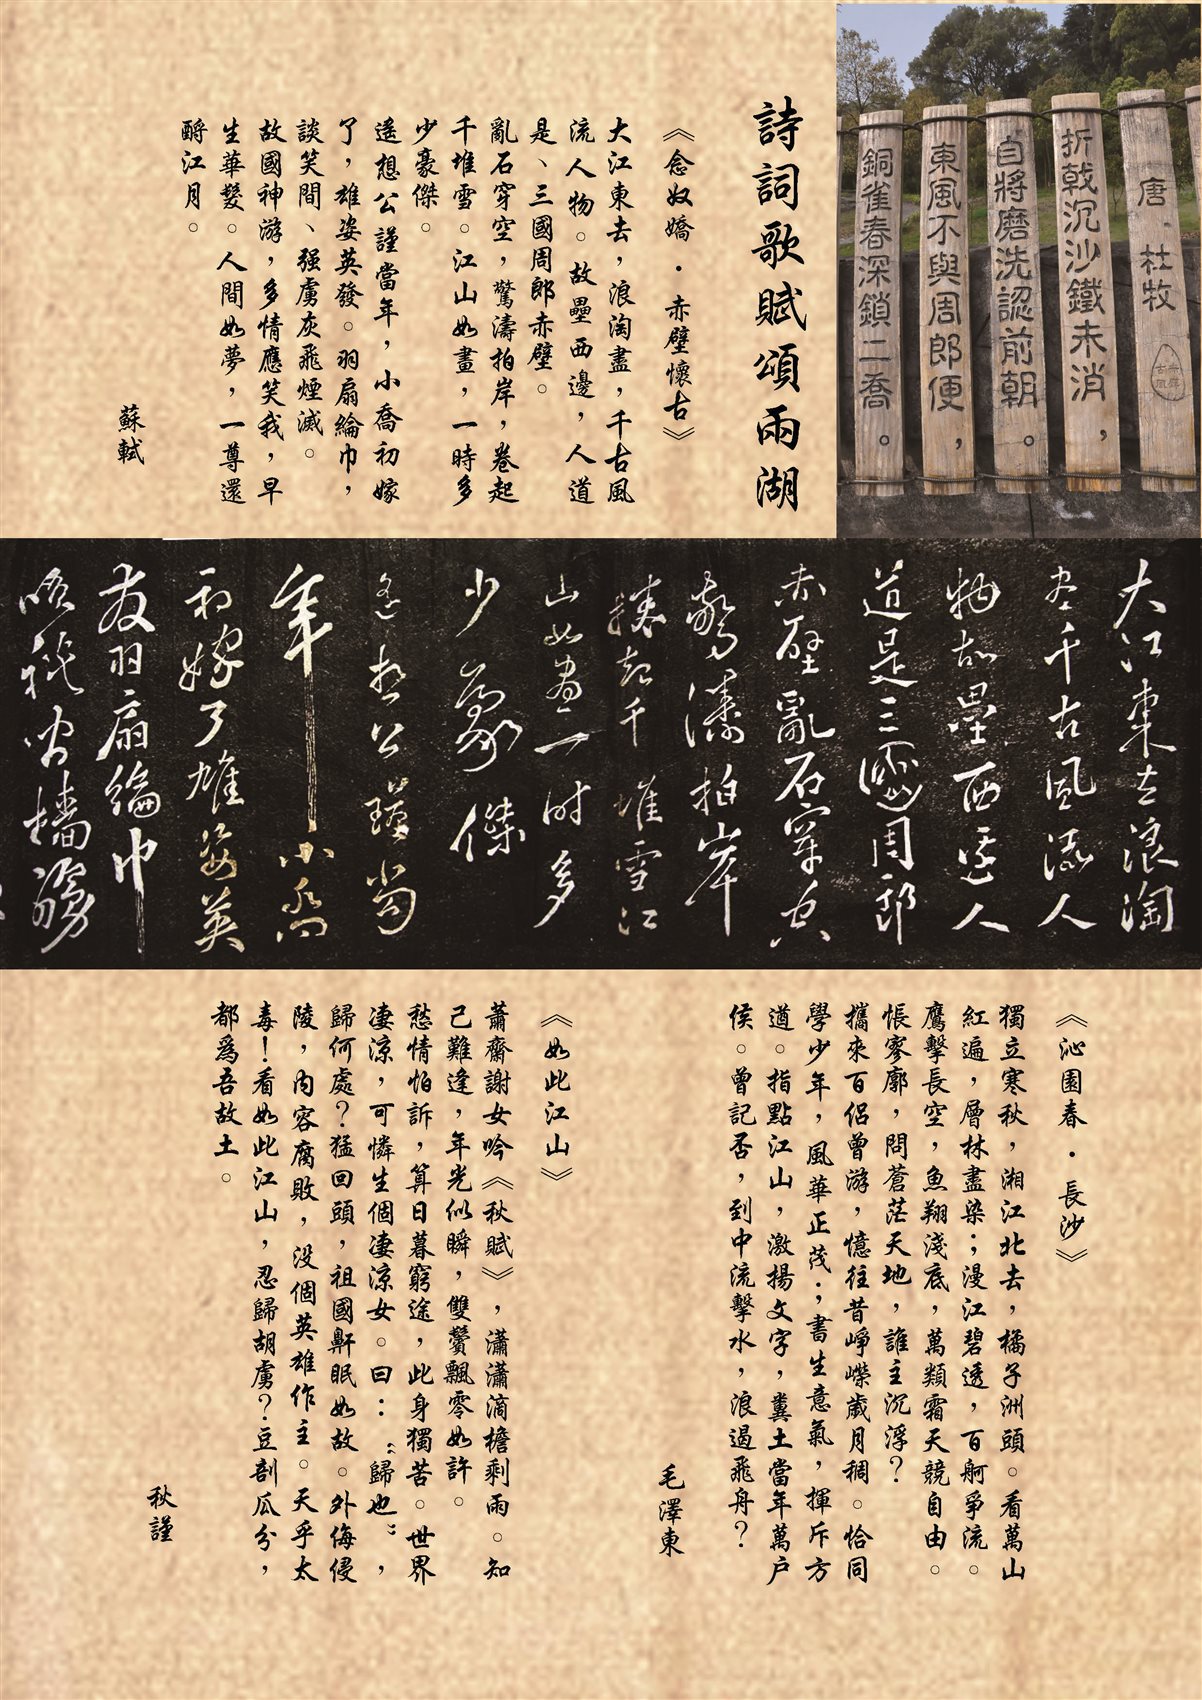 唐·杜牧
折戟沉沙鐵未消，
自將磨洗認前朝。
東風不與周郎便，
銅雀春深鎖二喬。
詩詞歌賦頌兩湖
《念奴嬌·赤壁懷古》
大江東去，浪淘盡，千古風
流人物。故壘西邊，人道
是、三國周郎赤壁。
亂石穿空，驚濤拍岸，卷起
千堆雪。江山如畫，一時多
少豪傑。
遙想公謹當年，小喬初嫁
了，雄姿英發。羽扇綸巾，
談笑間、强虜灰飛煙滅。
故國神游，多情應笑我，早
生華髮。人間如夢，一尊還
酹江月。
蘇軾
大江東去浪淘
盡千古風流人
物故壘西邊人
道是三國周郎
赤壁亂石穿空
驚濤拍岸
捲起千堆雪江
山如畫一時多
少豪傑
遙想公瑾當
年小喬
初嫁了雄姿英
發羽扇綸巾
談笑間檣艣
《沁園春·長沙》
獨立寒秋，湘江北去，橘子洲頭。看萬山
紅遍，層林盡染；漫江碧透，百舸爭流。
鷹擊長空，魚翔淺底，萬類霜天競自由。
悵寥廓，問蒼茫天地，誰主沉浮？
攜來百侶曾游，憶往昔崢嶸歲月稠。恰同
學少年，風華正茂；書生意氣，揮斥方
遒。指點江山，激揚文字，糞土當年萬户
侯。曾記否，到中流擊水，浪遏飛舟？
毛澤東
《如此江山》
蕭齋謝女吟《秋賦》，瀟瀟滴檐剩雨。知
己難逢，年光似瞬，雙鬢飄零如許。
愁情怕訴，算日暮窮途，此身獨苦。世界
凄涼，可憐生個凄涼女。曰：“歸也”，
歸何處？猛回頭，祖國鼾眠如故。外侮侵
陵，内容腐敗，没個英雄作主。天乎太
毒！看如此江山，忍歸胡虜？豆剖瓜分，
都爲吾故土。
秋謹